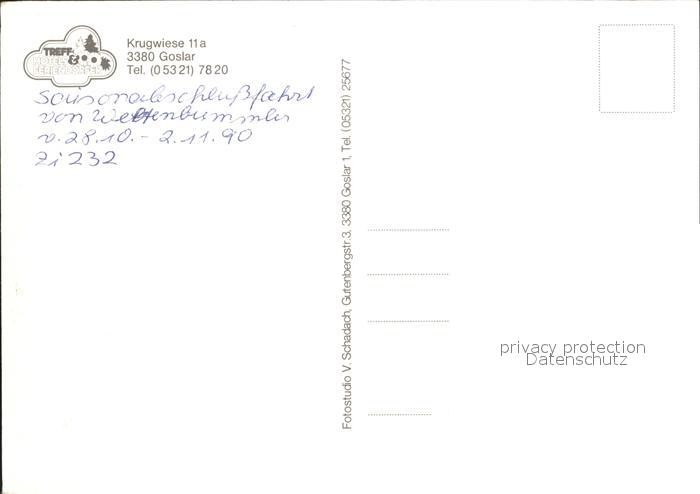 TREFF
HOTELS &
FERIENDÖRFER
Krugwiese 11a
3380 Goslar
Tel. (0 53 21) 78 20
Saisonabschlußfahrt
von Weltenbummler
v. 28.10. - 2.11.90
Zi 232
Fotostudio V. Schadach, Gutenbergstr. 3, 3380 Goslar 1, Tel. (05321) 25677
privacy protection
Datenschutz